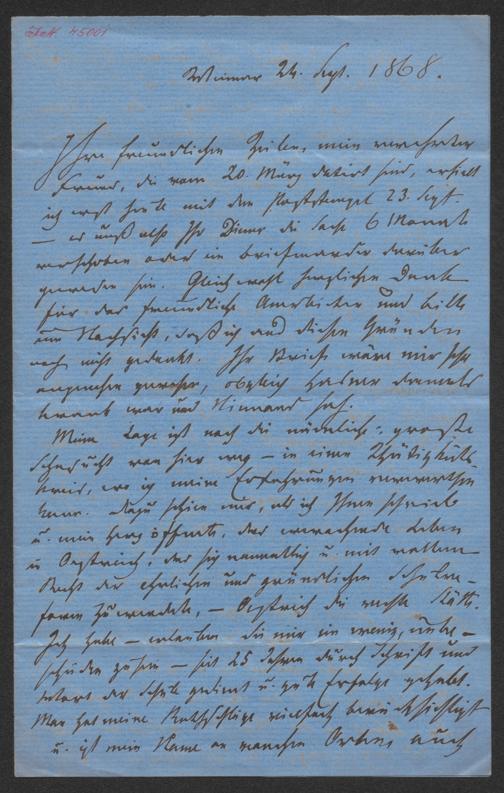 45001
Weimar 24. Sept. 1868.
Ihre freundlichen Zeilen, mein verehrter
Freund, die vom 20. März datirt sind, erhielt
ich erst heute mit dem Poststempel 23. Sept.
— es muß also Ihr Diener die Sache 6 Monate
verschoben oder ein Briefmarder darüber
gewesen sein. Gleichwohl herzlichen Dank
für das freundliche Anerbieten und bitte
um Nachsicht, daß ich aus diesen Gründen
noch nicht gedankt. Ihr Besuch wäre mir sehr
angenehm gewesen, obgleich damals
krank war und Niemand sah.
Meine Lage ist noch die nämliche: große
Sehnsucht von hier weg — in einen Thätigkeits-
kreis, wo ich meine Erfahrungen verwerthen
kann. Dazu schien mir, als ich Ihnen schrieb
u. mein Herz öffnete, das erwachende Leben
in Oestreich, das sich namentlich u. mit vollem
Recht der ehrlichen und gründlichen Schulre-
form zuwendete, — Oestreich die rechte Stätte.
Ich habe — erlauben Sie mir ein wenig unbe-
scheiden zu sein — seit 25 Jahren durch Schrift und
Wort der Schule gedient u. gute Erfolge gehabt.
Man hat meine Rathschläge vielfach berücksichtigt
u. ist mein Name an manchen Orten auch